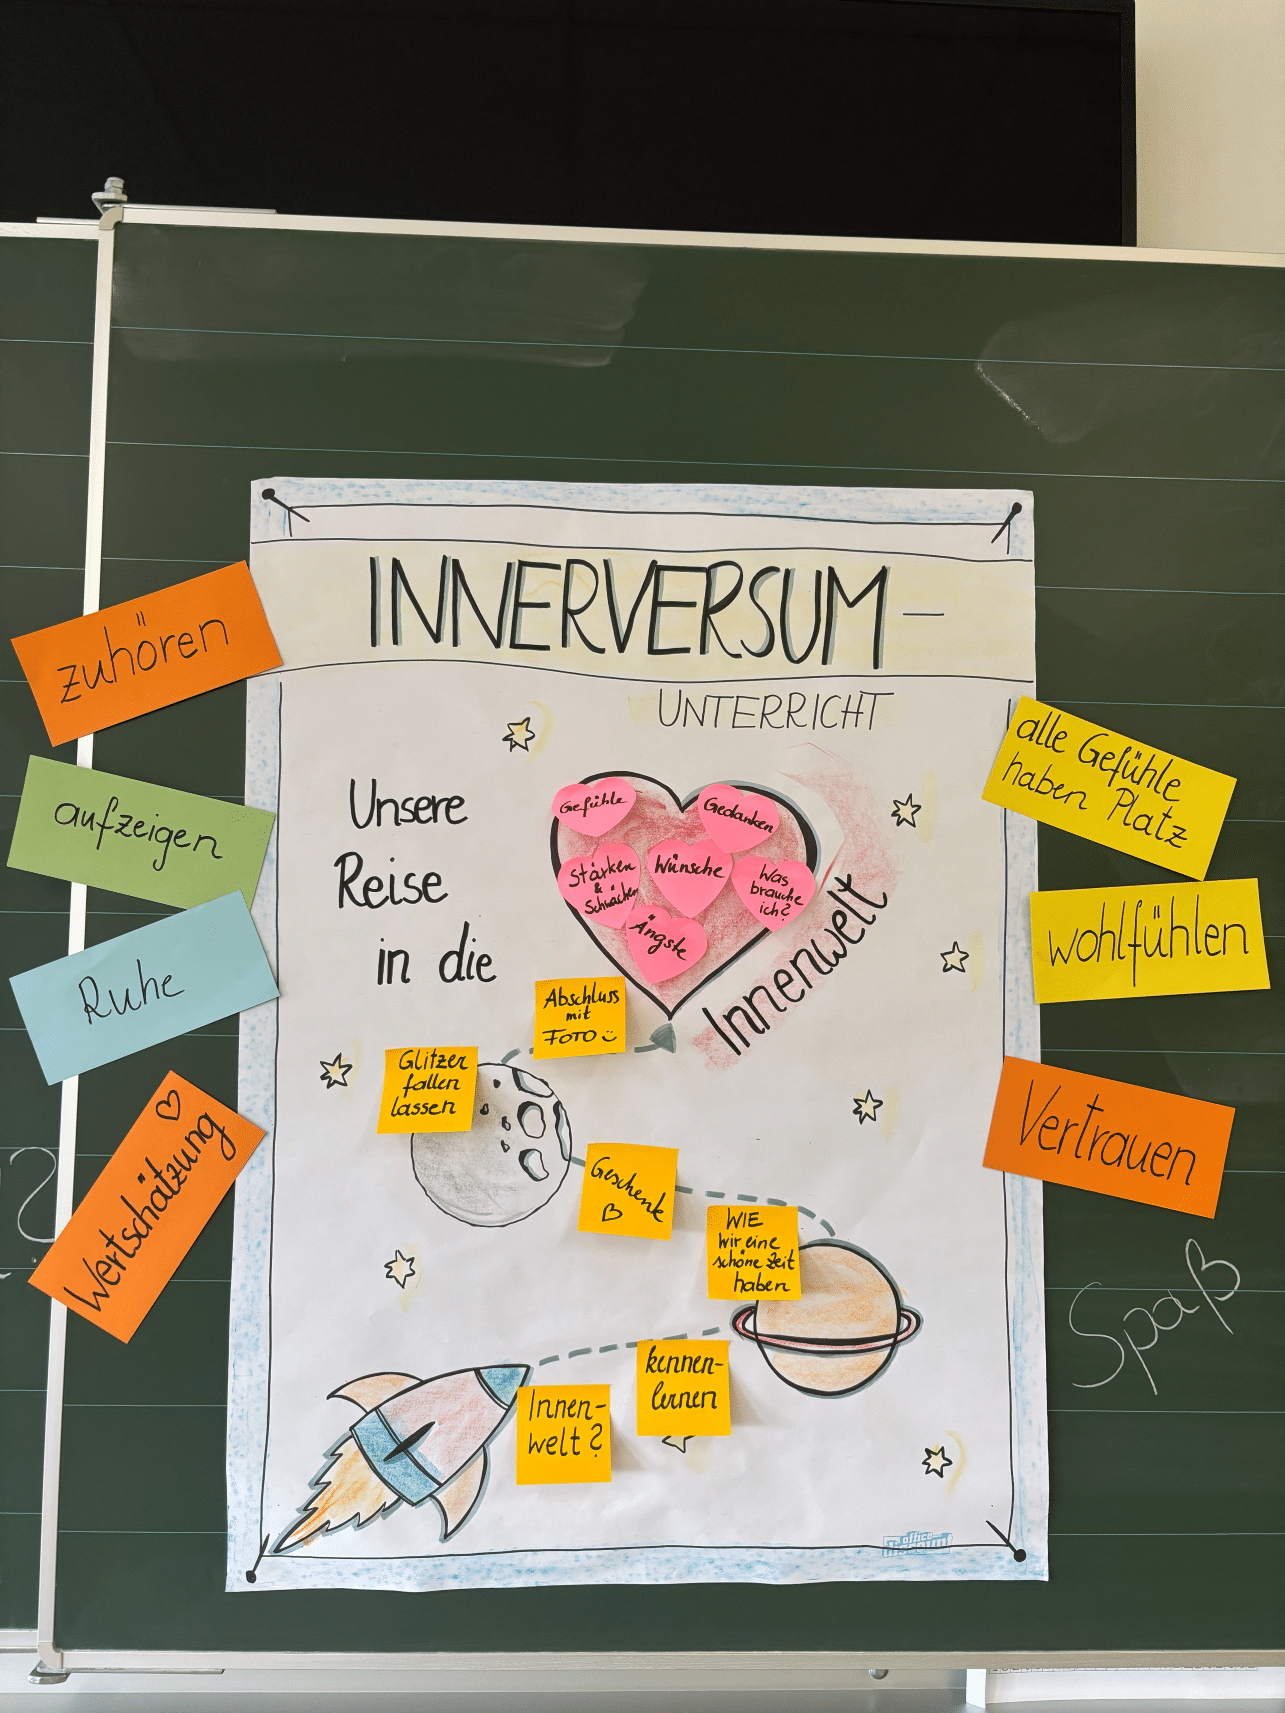 INNERVERSUM-
UNTERRICHT
Unsere
Reise
in die
Innenwelt
Gefühle
Gedanken
Stärken
&
Schwächen
Wünsche
Was
brauche
ich?
Ängste
Abschluss
mit
FOTO
Glitzer
fallen
lassen
Geschenk
WIE
wir eine
schöne Zeit
haben
kennen-
lernen
Innen-
welt?
zuhören
aufzeigen
Ruhe
Wertschätzung
alle Gefühle
haben Platz
wohlfühlen
Vertrauen
Spaß
office
discount